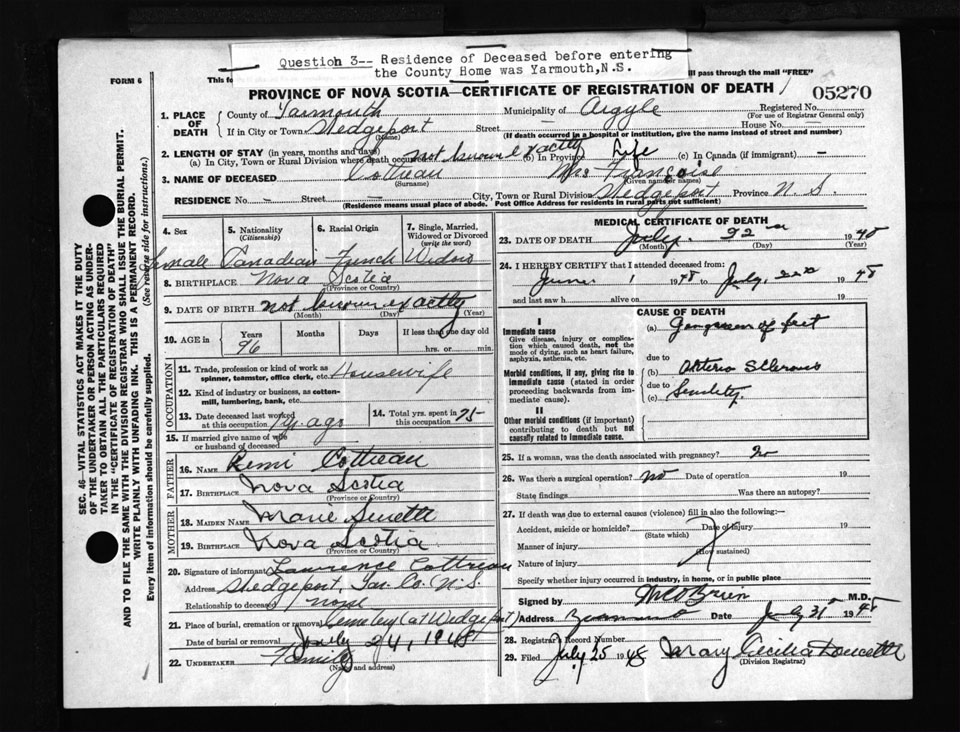 Question 3-- Residence of Deceased before entering
the County Home was Yarmouth,N.S.
FORM 6
This fo
ill pass through the mail "FREE"
PROVINCE OF NOVA SCOTIA—CERTIFICATE OF REGISTRATION OF DEATH
05270
1. PLACE OF DEATH
County of Yarmouth Municipality of Argyle Registered No.
(For use of Registrar General only)
If in City or Town Wedgeport Street House No.
(Name) (If death occurred in a hospital or institution, give the name instead of street and number)
2. LENGTH OF STAY (in years, months and days)
(a) In City, Town or Rural Division where death occurred not known exactly (b) In Province Life (c) In Canada (if immigrant) —
3. NAME OF DECEASED Cottreau Mrs Françoise
(Surname) (Given name or names)
RESIDENCE No. - Street - City, Town or Rural Division Wedgeport Province N. S.
(Residence means usual place of abode. Post Office Address for residents in rural parts not sufficient)
4. Sex 5. Nationality (Citizenship) 6. Racial Origin 7. Single, Married, Widowed or Divorced (write the word)
Female Canadian French Widow
8. BIRTHPLACE Nova Scotia
(Province or Country)
9. DATE OF BIRTH not known exactly
(Month) (Day) (Year)
10. AGE in Years Months Days If less than one day old
96 hrs. or min.
OCCUPATION
11. Trade, profession or kind of work as
spinner, teamster, office clerk, etc. Housewife
12. Kind of industry or business, as cotten-
mill, lumbering, bank, etc.
13. Date deceased last worked
at this occupation 1 yr. ago
14. Total yrs. spent in
this occupation 75
15. If married give name of wife
or husband of deceased
FATHER
16. NAME Remi Cottreau
17. BIRTHPLACE Nova Scotia
(Province or Country)
MOTHER
18. MAIDEN NAME Marie
19. BIRTHPLACE Nova Scotia
(Province or Country)
20. Signature of informant Lawrence Cottreau
Address Wedgeport, Yar. Co. N.S.
Relationship to deceased none
21. Place of burial, cremation or removal Cemetery (at Wedgeport)
Date of burial or removal July 24, 1948
22. UNDERTAKER Family
(Name and address)
MEDICAL CERTIFICATE OF DEATH
23. DATE OF DEATH July 22 1948
(Month) (Day) (Year)
24. I HEREBY CERTIFY that I attended deceased from:
June 1 1948 to July 1948
and last saw h alive on 19
CAUSE OF DEATH
I
Immediate cause
Give disease, injury or complica-
tion which caused death, not the
mode of dying, such as heart failure,
asphyxia, asthenia, etc.
Morbid conditions, if any, giving rise to
immediate cause (stated in order
proceeding backwards from im-
mediate cause).
II
Other morbid conditions (if important)
contributing to death but not
causally related to immediate cause.
(a) Gangreen of feet
due to
Arterio Sclerosis
due to
(c) Senility
25. If a woman, was the death associated with pregnancy? no
26. Was there a surgical operation? no Date of operation 19
State findings Was there an autopsy?
27. If death was due to external causes (violence) fill in also the following:-
Accident, suicide or homicide? Date of injury 19
(State which)
Manner of injury
(How sustained)
Nature of injury
Specify whether injury occurred in industry, in home, or in public place
Signed by M.D.
Address Date July 31 1948
28. Registrar's Record Number
29. Filed July 25 1948 Mary Cecilia Doucette
(Division Registrar)
SEC. 46—VITAL STATISTICS ACT MAKES IT THE DUTY
OF THE UNDERTAKER OR PERSON ACTING AS UNDER-
TAKER TO OBTAIN ALL THE PARTICULARS REQUIRED
IN THE "CERTIFICATE OF REGISTRATION OF DEATH"
AND TO FILE THE SAME WITH THE DIVISION REGISTRAR WHO SHALL ISSUE THE BURIAL PERMIT.
WRITE PLAINLY WITH UNFADING INK. THIS IS A PERMANENT RECORD.
Every item of information should be carefully supplied. (See reverse side for instructions.)